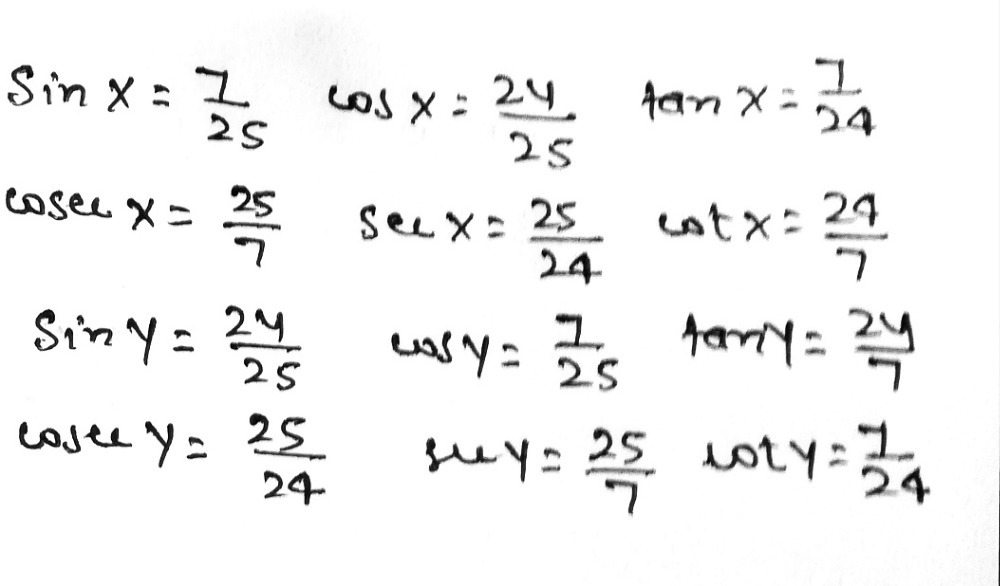 Sin x = 7/25 cos x = 24/25 tan x = 7/24
cosec x = 25/7 sec x = 25/24 cot x = 24/7
Sin y = 24/25 cos y = 7/25 tan y = 24/7
cosec y = 25/24 sec y = 25/7 cot y = 7/24